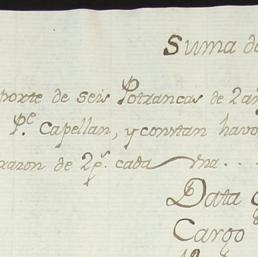 Suma de
porte de seis Potrancas de 2 añ
P.e Capellan, y constan havo
razon de 2 p.s cada una . . .
Data
Cargo